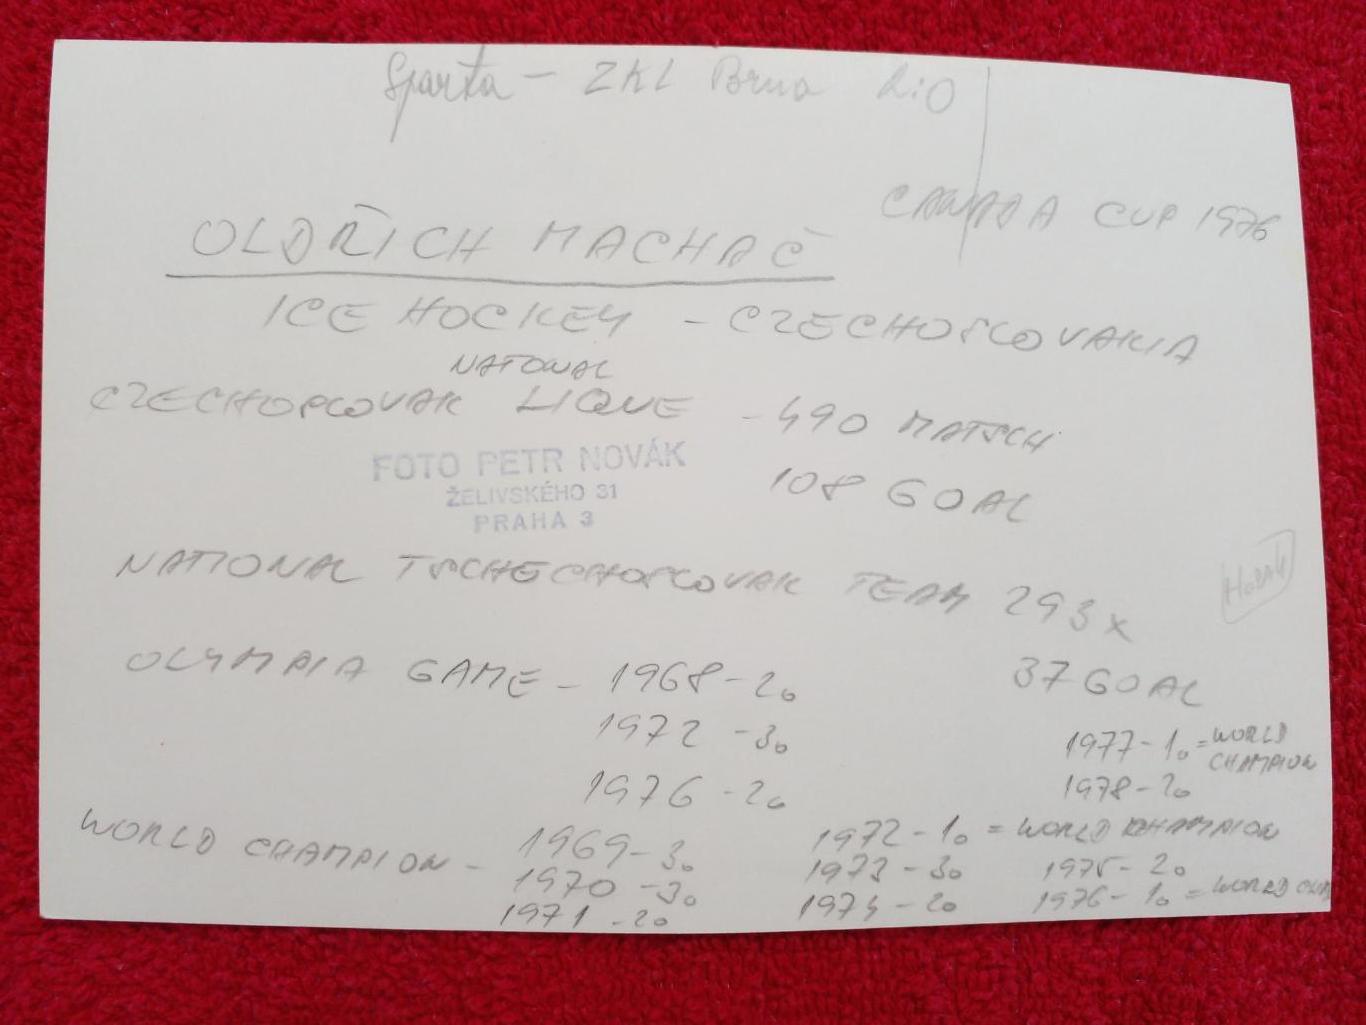 Sparta - ZKL Brno 2:0
CANADA CUP 1976
OLDŘICH MACHAČ
ICE HOCKEY - CZECHOSLOVAKIA
NATONAL
CZECHOSLOVAK LIQUE - 490 MATSCH
108 GOAL
FOTO PETR NOVÁK
ŽELIVSKÉHO 31
PRAHA 3
NATIONAL TSCHECHOSLOVAK TEAM 293x
37 GOAL
OLYMPIA GAME - 1968 - 2.
1972 - 3.
1976 - 2.
1977 - 1. = WORLD
CHAMPION
1978 - 2.
WORLD CHAMPION - 1969 - 3.
1970 - 3.
1971 - 2.
1972 - 1. = WORLD CHAMPION
1973 - 3.
1974 - 2.
1975 - 2.
1976 - 1. = WORLD